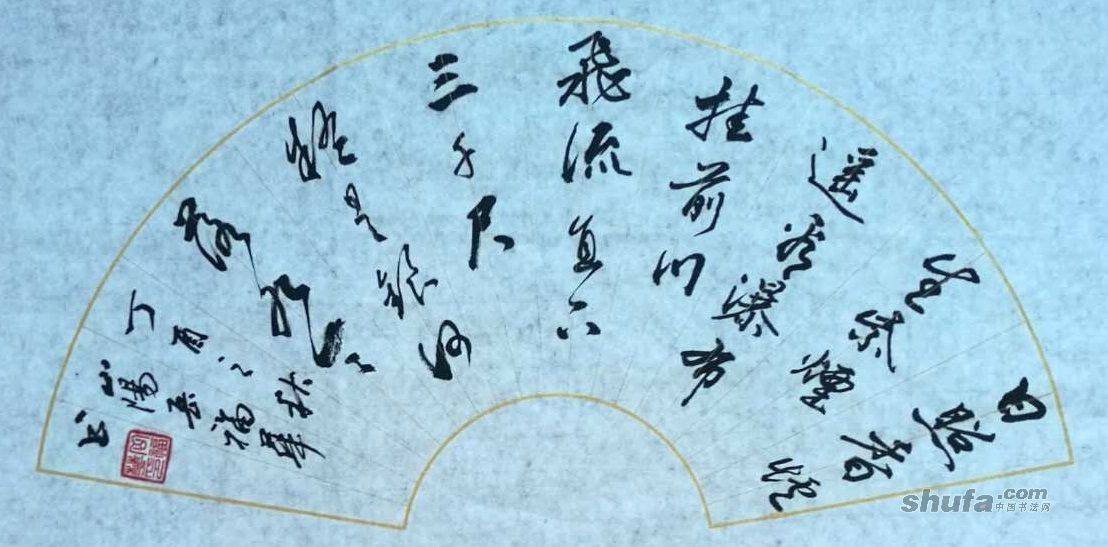 日照香炉
生紫煙
遥看瀑布
挂前川
飛流直下
三千尺
疑是銀河
落九天
丁酉之秋
山陽 福群
书
shufa.com
中国书法网